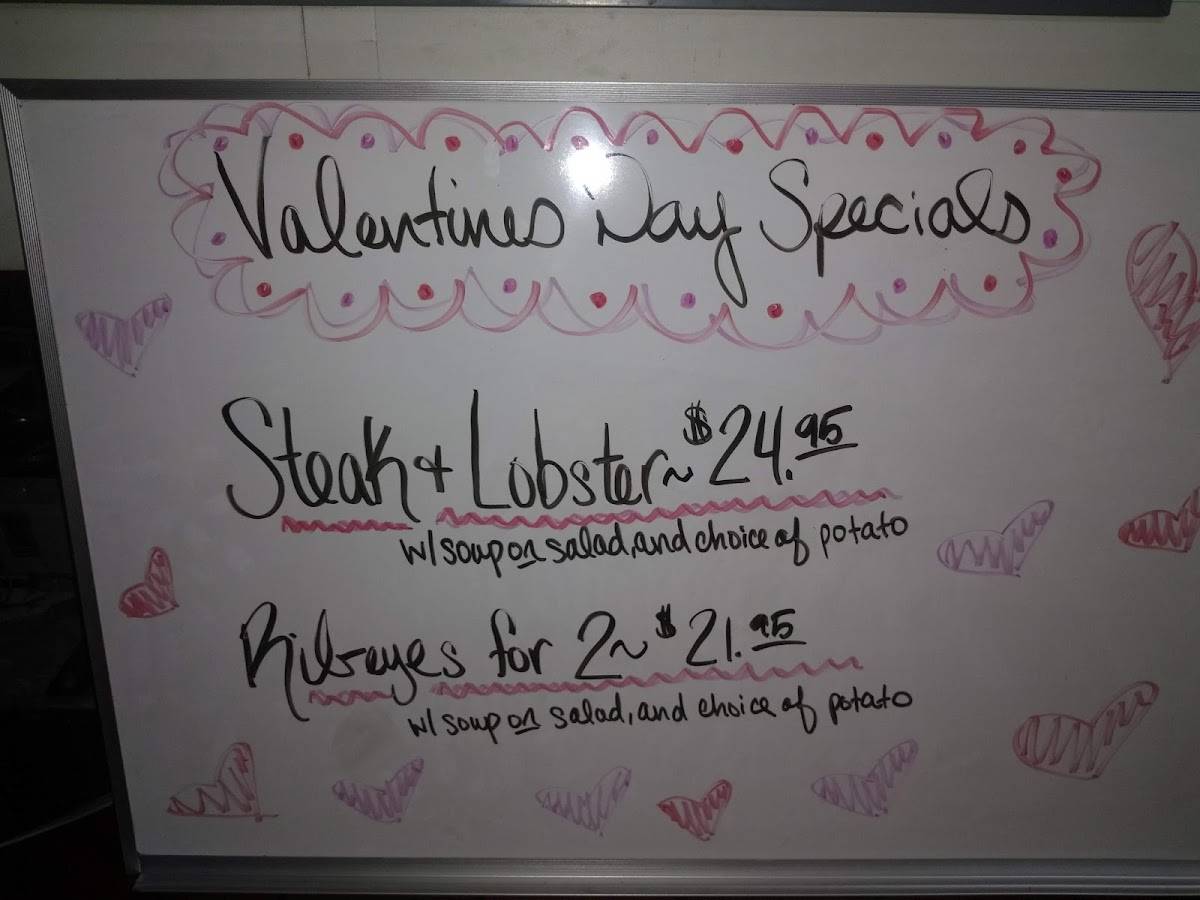 Valentines Day Specials
Steak + Lobster ~ $24.95
w/ soup or salad, and choice of potato
Rib-eyes for 2 ~ $21.95
w/ soup or salad, and choice of potato